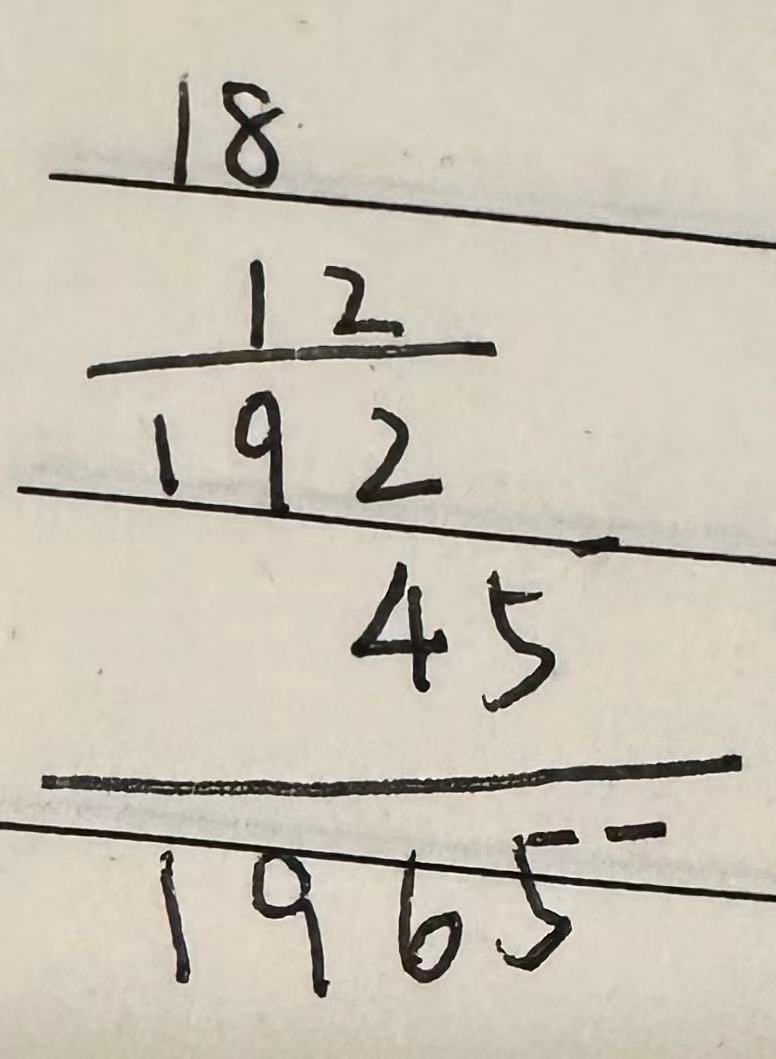 18
12
192
45
1965-